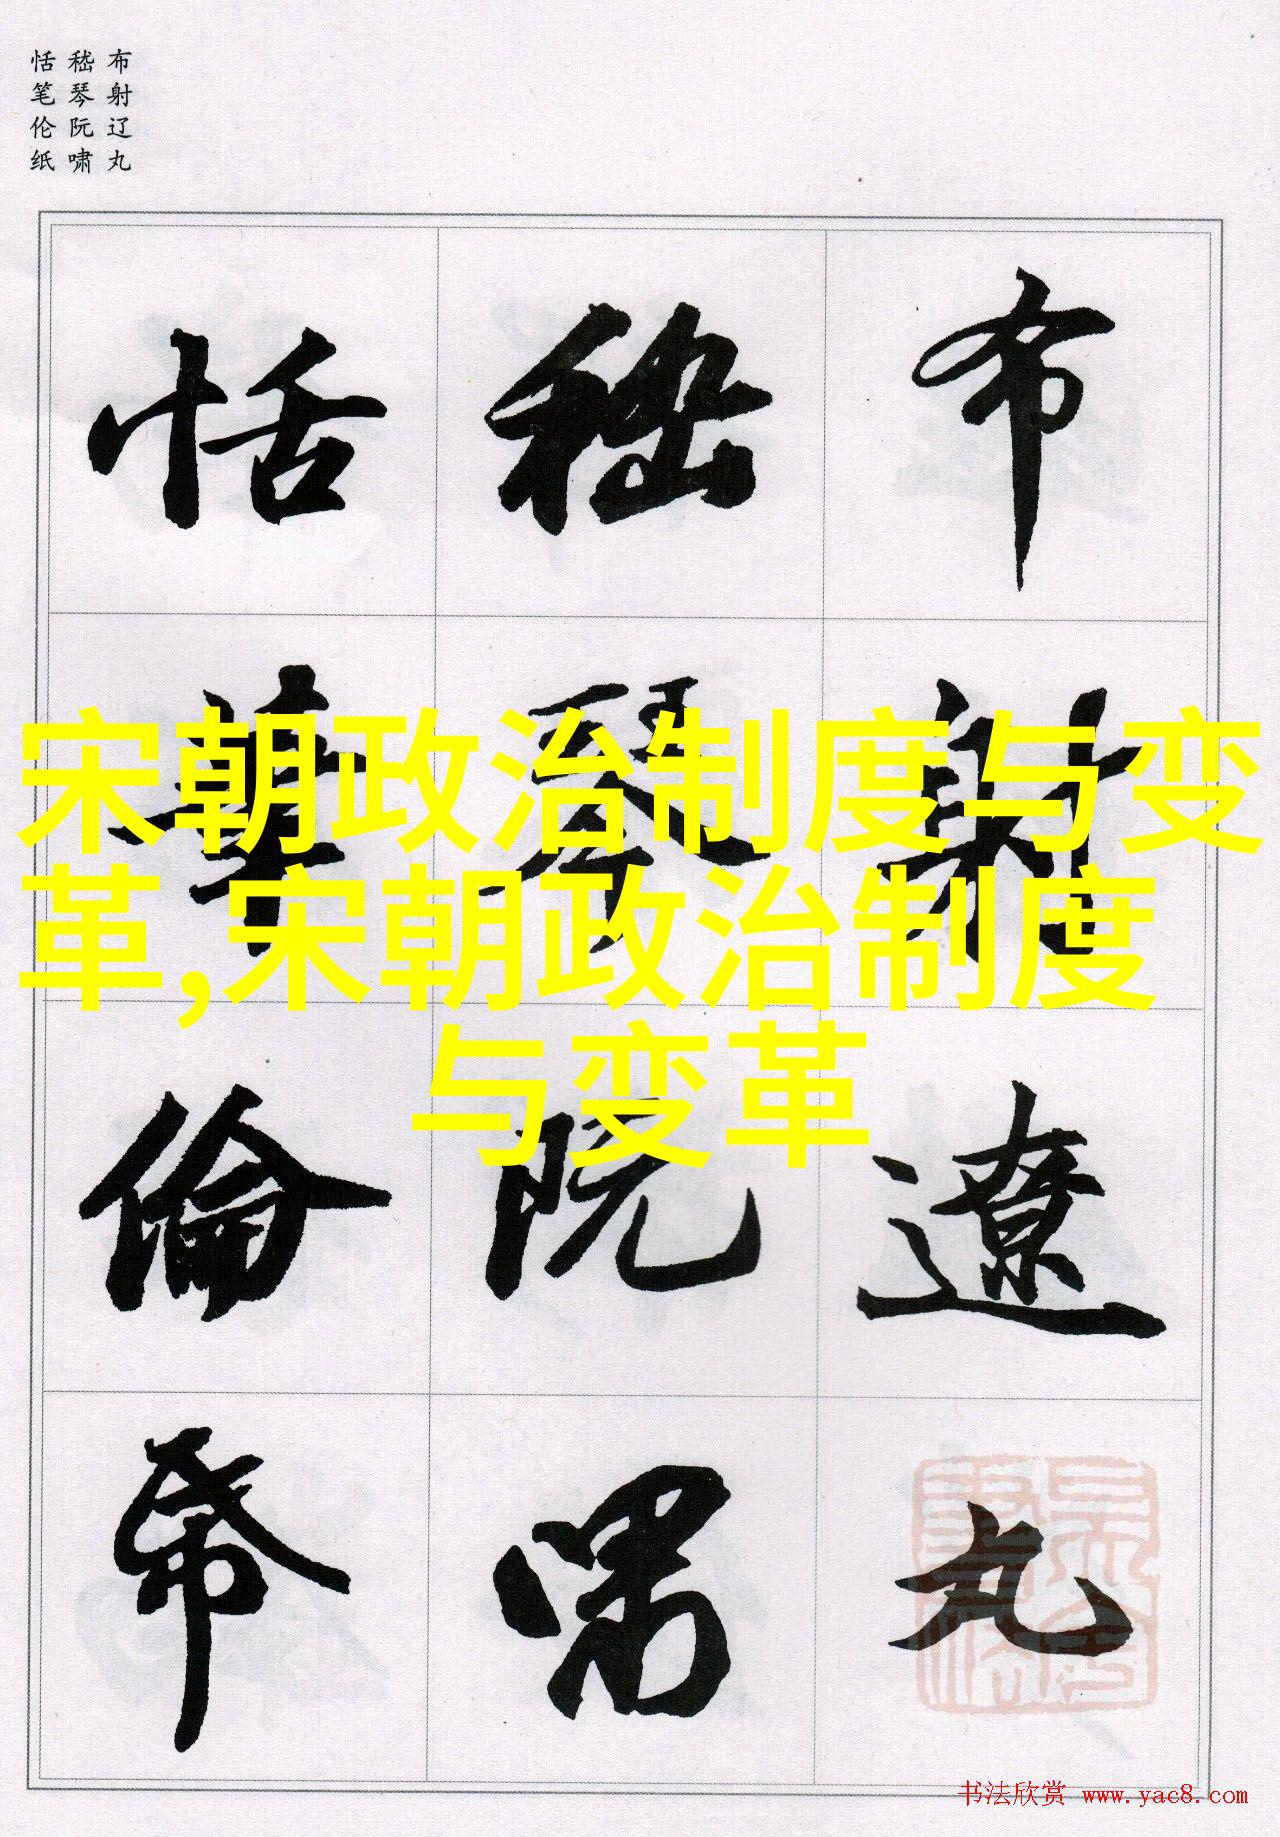 布射辽丸
嵇琴阮啸
恬笔伦纸
布射遼丸
嵇琴阮嘯
恬筆倫帋
宋朝政治制度与变
革,宋朝政治制度
与变革
书法欣赏 www.yac8.com